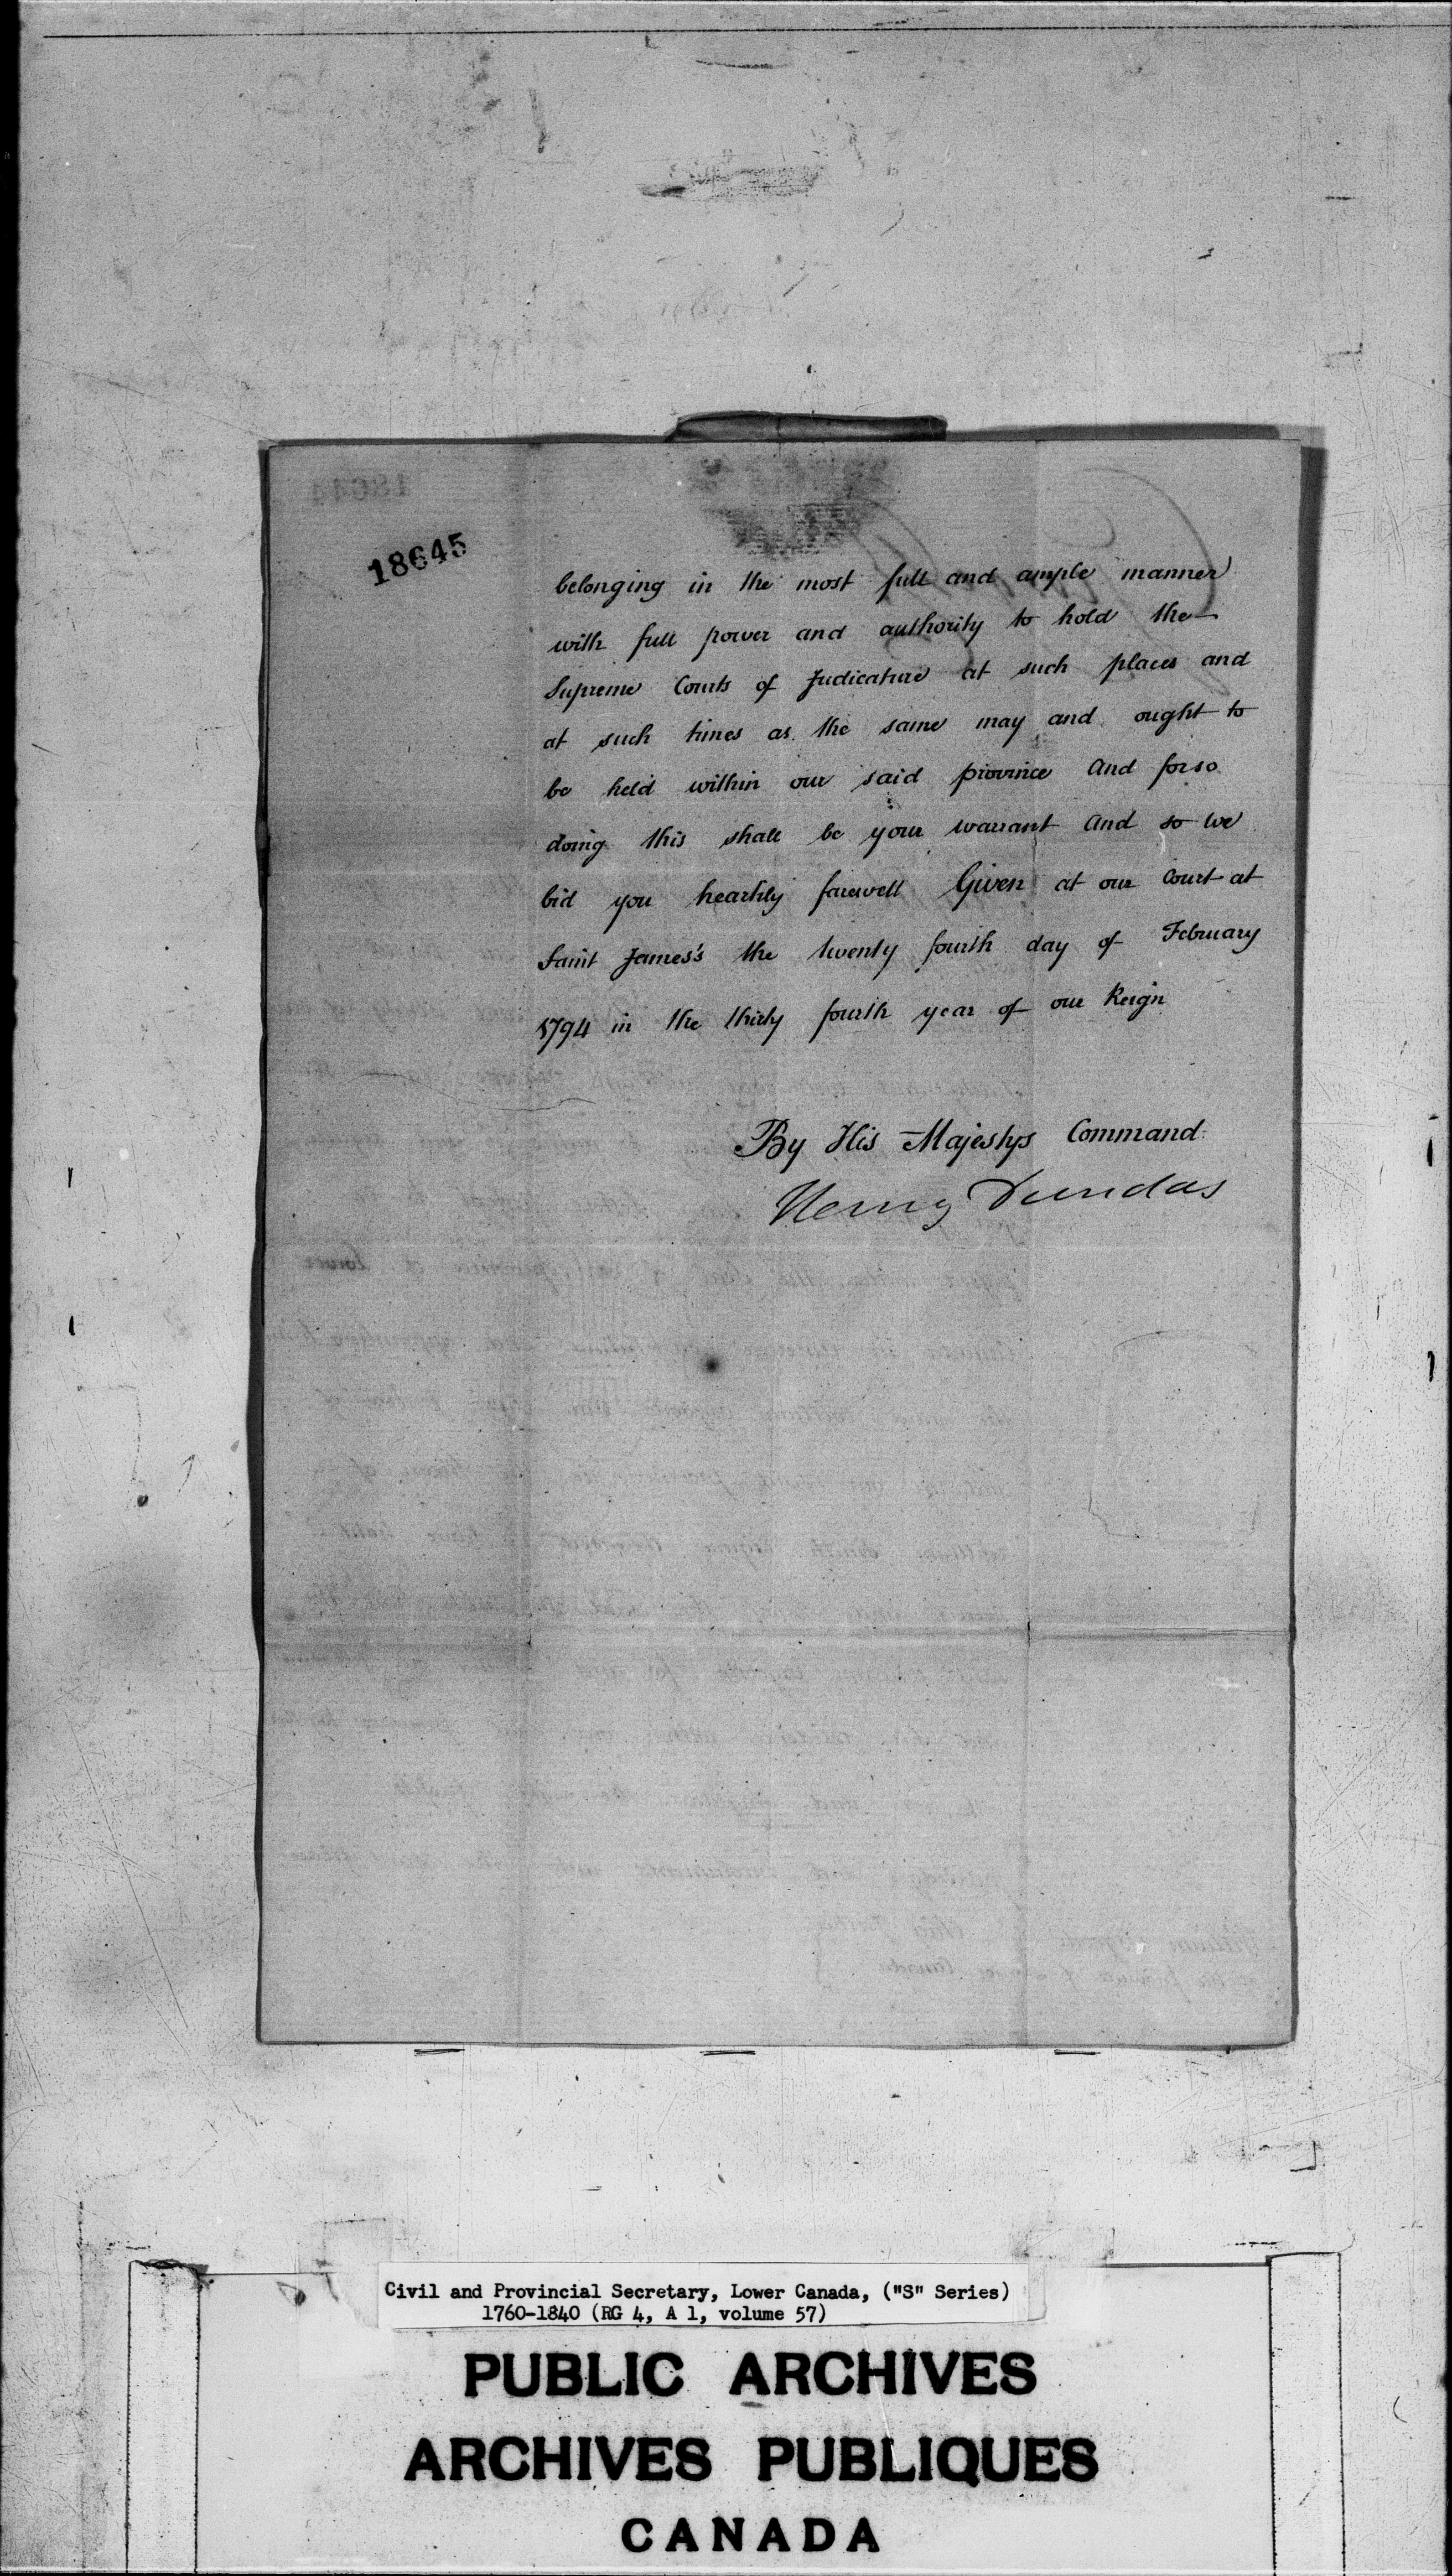 18645
belonging in the most full and ample manner
with full power and authority to hold the
Supreme Courts of Judicature at such places and
at such times as the same may and ought to
be held within our said province And for so
doing this shall be your warrant And so we
bid you heartily farewell Given at our Court at
Saint James's the twenty fourth day of February
1794 in the thirty fourth year of our Reign
By His Majestys Command
Henry Dundas
Civil and Provincial Secretary, Lower Canada, ("S" Series)
1760-1840 (RG 4, A 1, volume 57)
PUBLIC ARCHIVES
ARCHIVES PUBLIQUES
CANADA